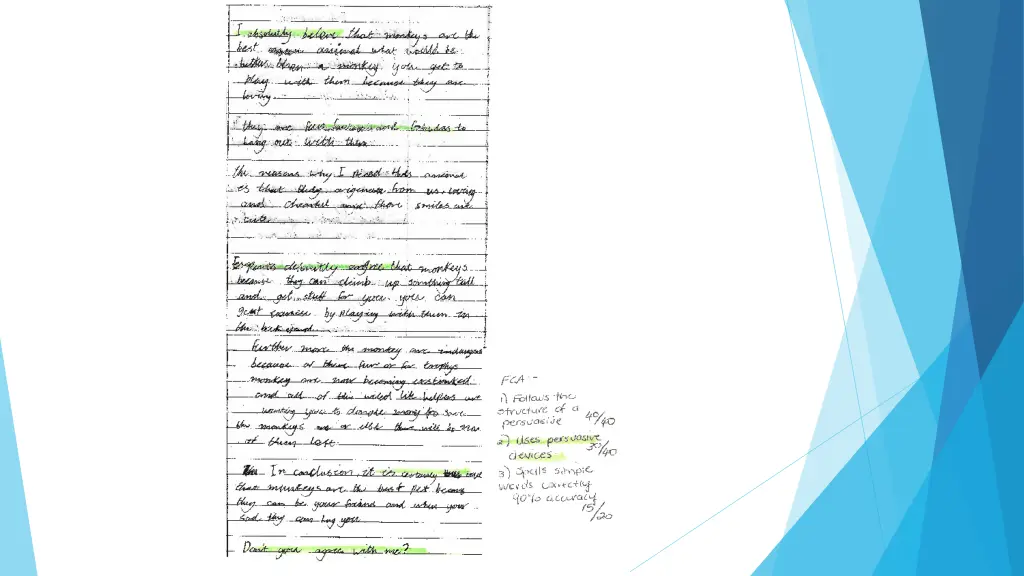 I absolutely beleve that monkeys are the
best animal what would be
better then a monkey you get to
play with them because they are
loving.
they are fun and fabulas to
hang out with them
the reasons why I picked this animal
is that they originate from us, loving
and chearful and there smiles are
cute
definitly agree that monkeys
because they can climb up something tall
and get stuff for you. you can
get exercise by playing with them in
the back
Further more the monkey are
because of there fur or for trophys
monkey are now becoming
and all of the wiled life helpers are
wanting you to donate money to save
the monkeys or else there will be
of them left.
In conclusion, it is certainly
that munkeys are the best pet because
they can be your friend and when your
sad they can hug you
Don't you agree with me?
FCA:-
1) Follows the
structure of a
persuasive 40/40
2) Uses persuasive
devices 30/40
3) Spells simple
words correctly
90% accuracy
15/20